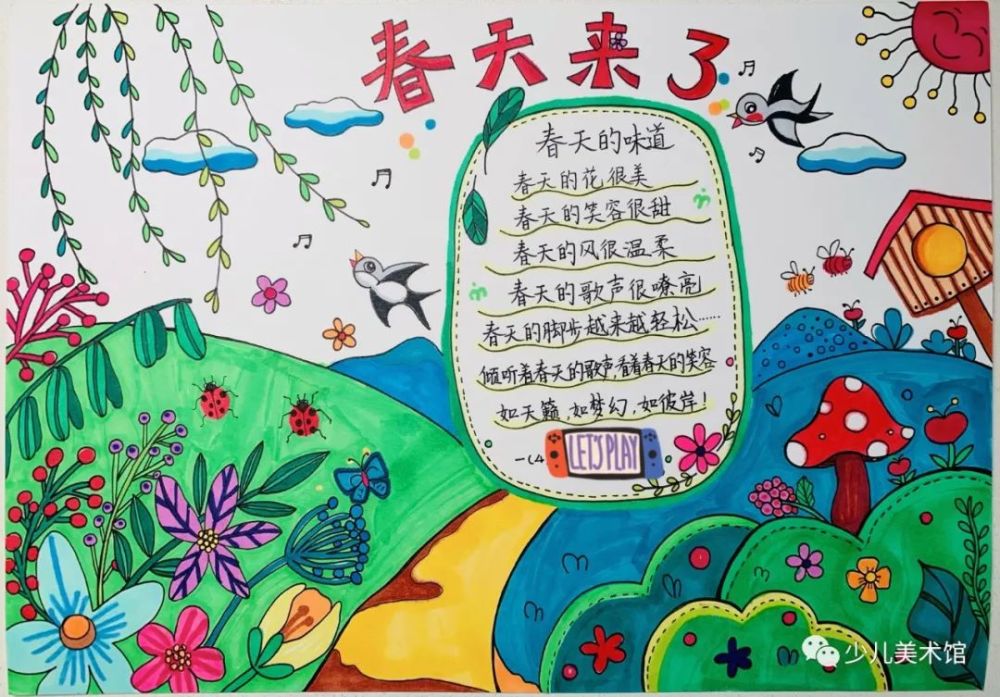 春天来了
春天的味道
春天的花很美
春天的笑容很甜
春天的风很温柔
春天的歌声很嘹亮
春天的脚步越来越轻松……
倾听着春天的歌声看着春天的笑容
如天籁,如梦幻,如彼岸!
一(4
LET'S PLAY
少儿美术馆